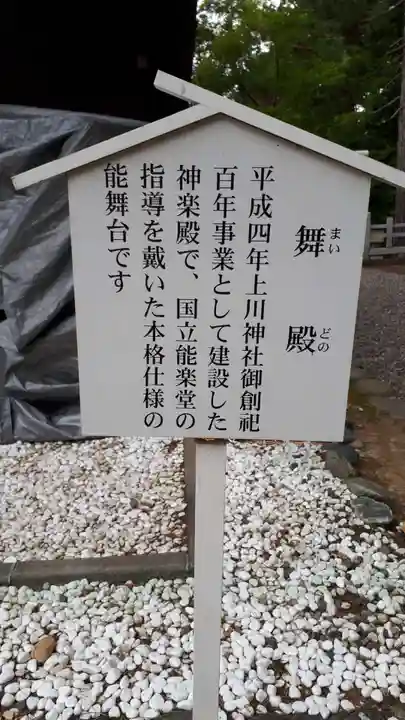 舞殿
まいどの
平成四年上川神社御創祀
百年事業として建設した
神楽殿で、国立能楽堂の
指導を戴いた本格仕様の
能舞台です